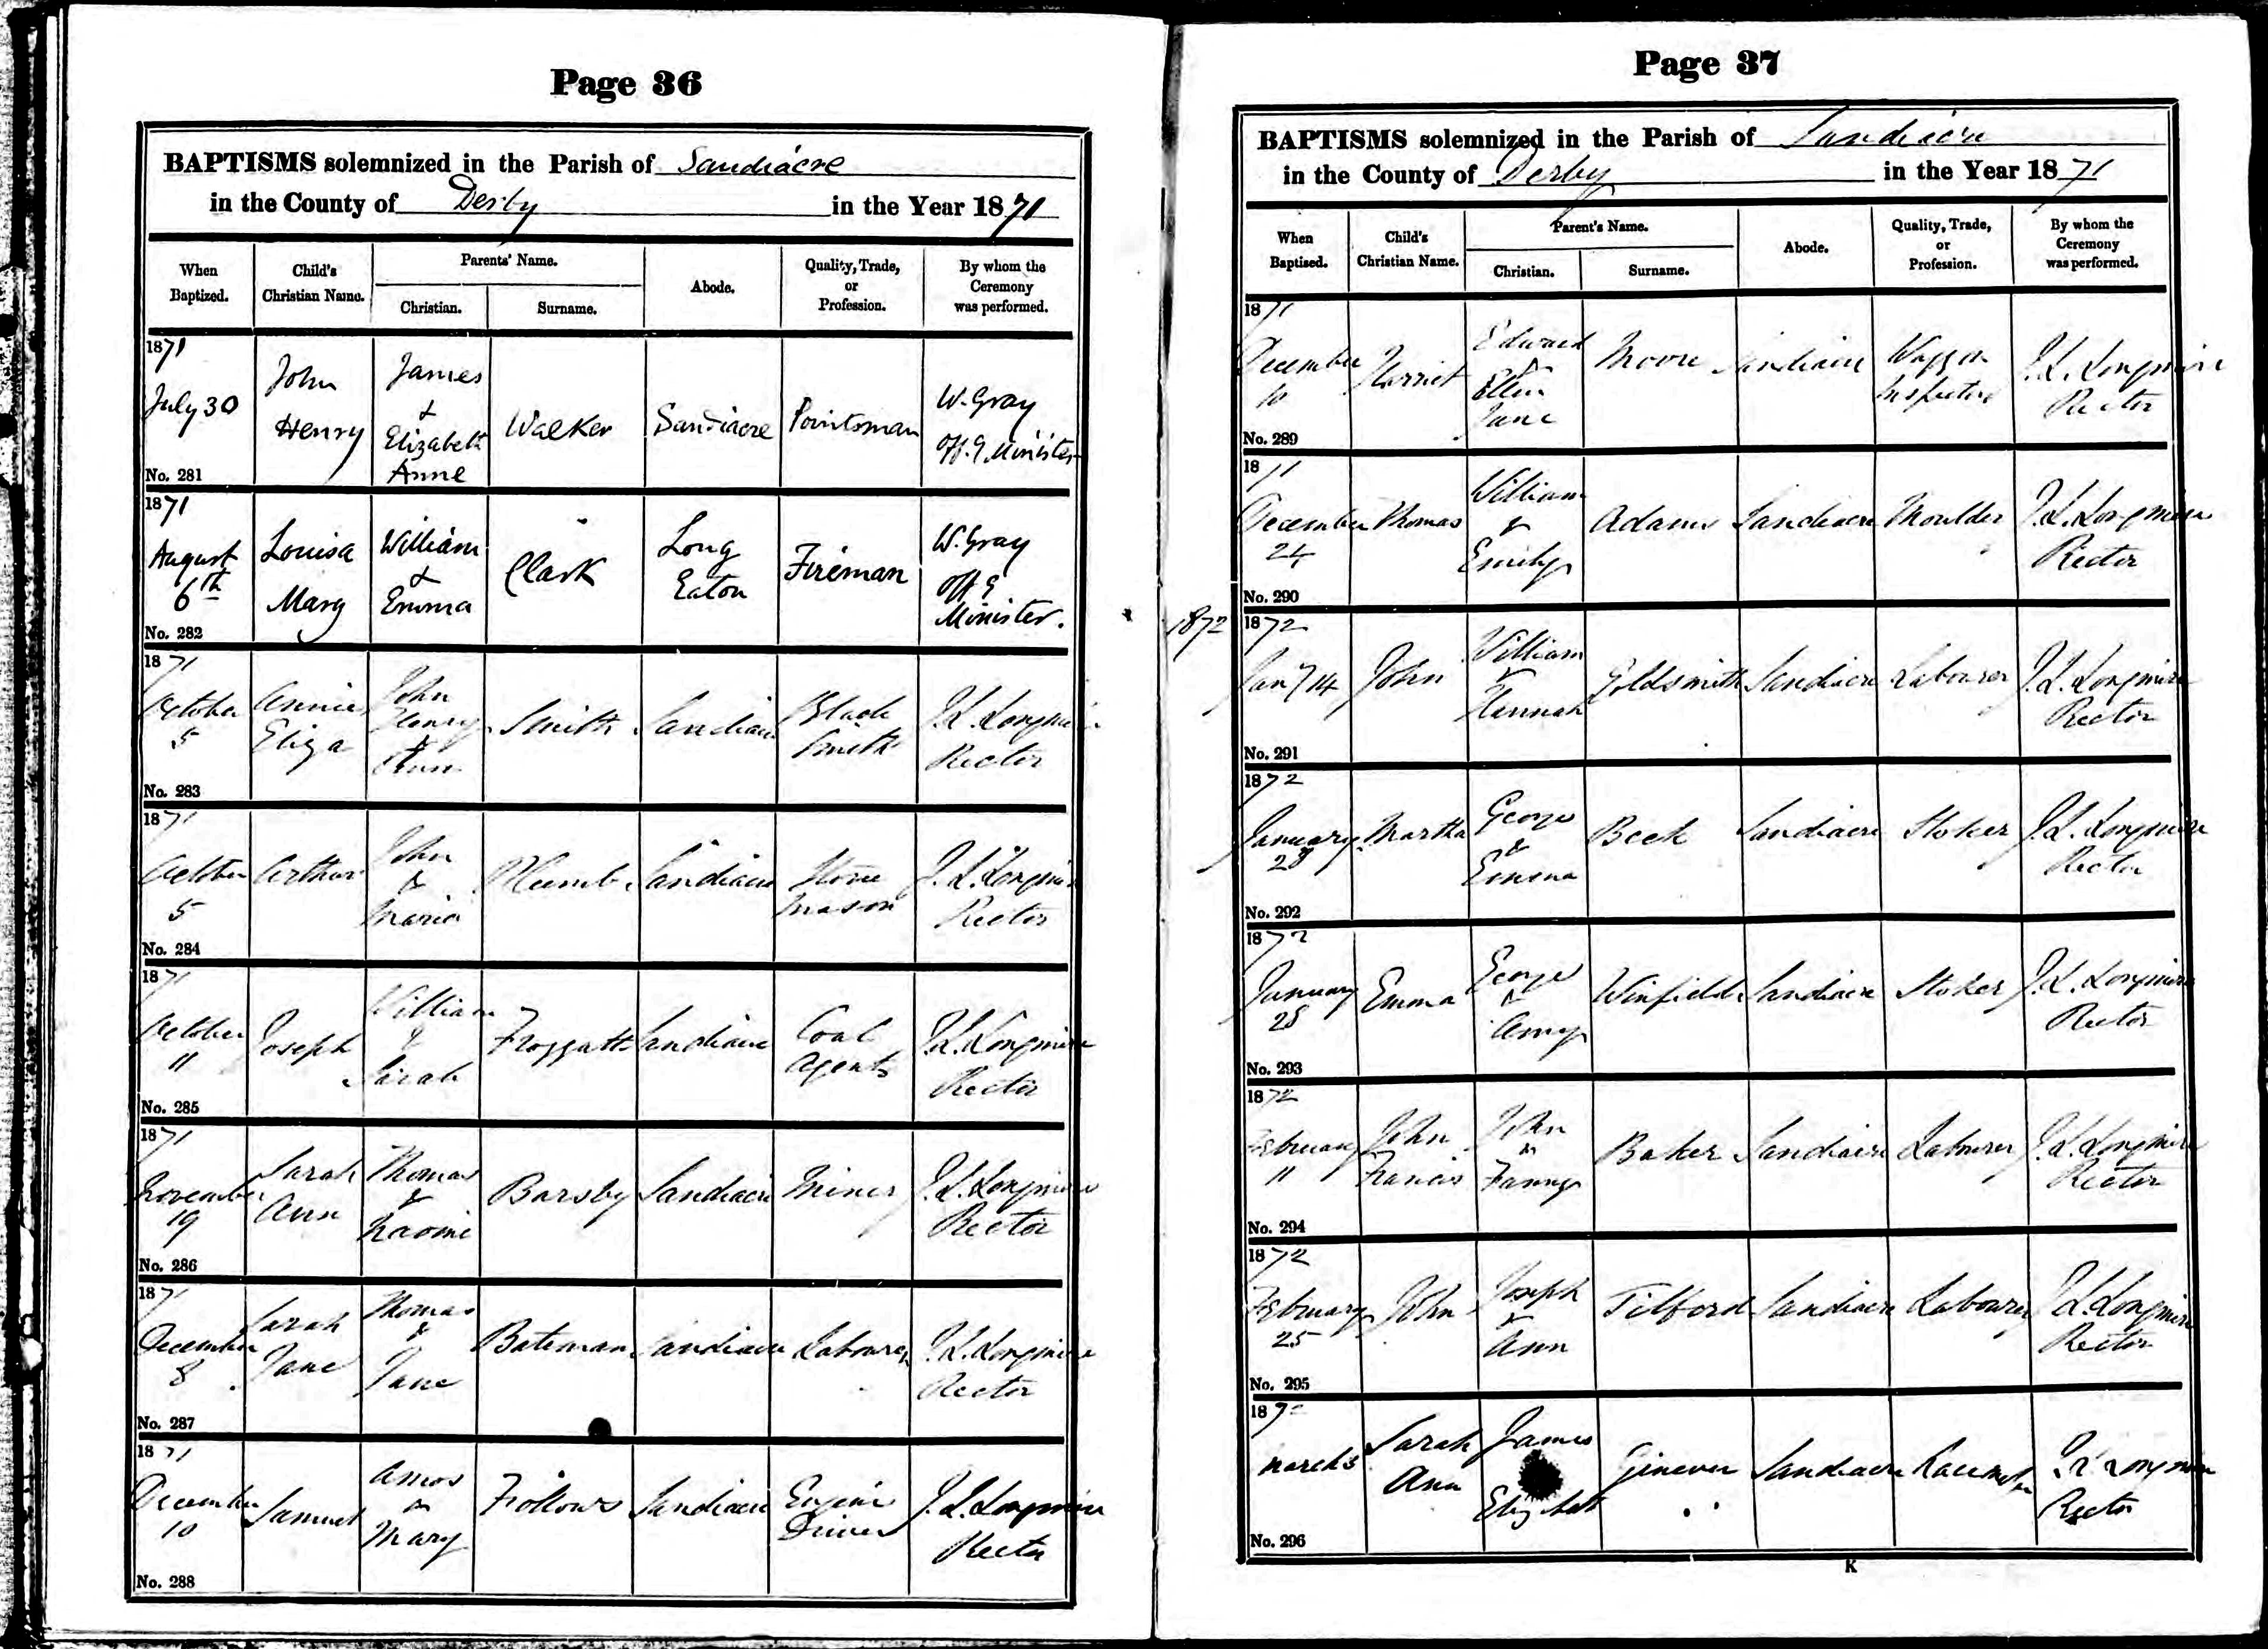 Page 36
BAPTISMS solemnized in the Parish of Sandiacre
in the County of Derby in the Year 1871
When Baptized. Child's Christian Name. Parents' Name. Christian. Surname. Abode. Quality, Trade, or Profession. By whom the Ceremony was performed.
1871 July 30 John Henry James & Elizabeth Anne Walker Sandiacre Pointsman W. Gray Off.g Minister
No. 281
1871 August 6th Louisa Mary William & Emma Clark Long Eaton Fireman W. Gray Off.g Minister.
No. 282
1871 October 5 Annie Eliza John Henry & Ann Smith Sandiacre Black Smith J. L. Longmire Rector
No. 283
1871 October 5 Arthur John & Maria Sandiacre Stone Mason J. L. Longmire Rector
No. 284
1871 October 11 Joseph William & Sarah Froggatt Sandiacre Coal Agent J. L. Longmire Rector
No. 285
1871 November 19 Sarah Ann Thomas & Naomi Barsby Sandiacre Miner J. L. Longmire Rector
No. 286
1871 December 8 Sarah Jane Thomas & Jane Bateman Sandiacre Labourer J. L. Longmire Rector
No. 287
1871 December 10 Samuel Amos & Mary Follows Sandiacre Engine Driver J. L. Longmire Rector
No. 288
Page 37
BAPTISMS solemnized in the Parish of Sandiacre
in the County of Derby in the Year 1871
When Baptised. Child's Christian Name. Parent's Name. Christian. Surname. Abode. Quality, Trade, or Profession. By whom the Ceremony was performed.
1871 December 10 Harriet Edward & Ellen Jane Moore Sandiacre Waggon Inspector J. L. Longmire Rector
No. 289
1871 December 24 Thomas William & Emily Adams Sandiacre Moulder J. L. Longmire Rector
No. 290
1872
1872 Jany 14 John William & Hannah Goldsmith Sandiacre Labourer J. L. Longmire Rector
No. 291
1872 January 28 Martha George & Emma Beck Sandiacre Stoker J. L. Longmire Rector
No. 292
1872 January 28 Emma George & Amy Winfield Sandiacre Stoker J. L. Longmire Rector
No. 293
1872 February 11 John Francis John & Fanny Baker Sandiacre Labourer J. L. Longmire Rector
No. 294
1872 February 25 John Joseph & Ann Tilford Sandiacre Labourer J. L. Longmire Rector
No. 295
1872 March 3 Sarah Ann James Elizabeth Ginever Sandiacre J. L. Longmire Rector
No. 296
K